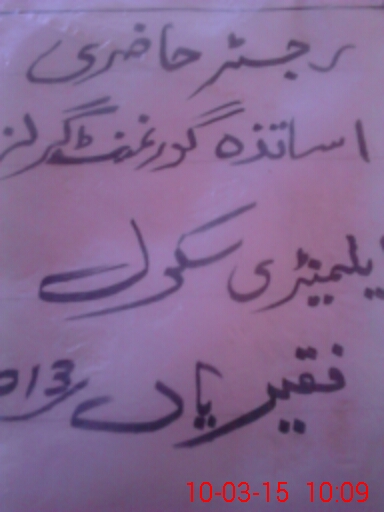 رجسٹر حاضری
اساتذہ گورنمنٹ گرلز
ایلمینٹری سکول
فقیریاں 013
10-03-15 10:09